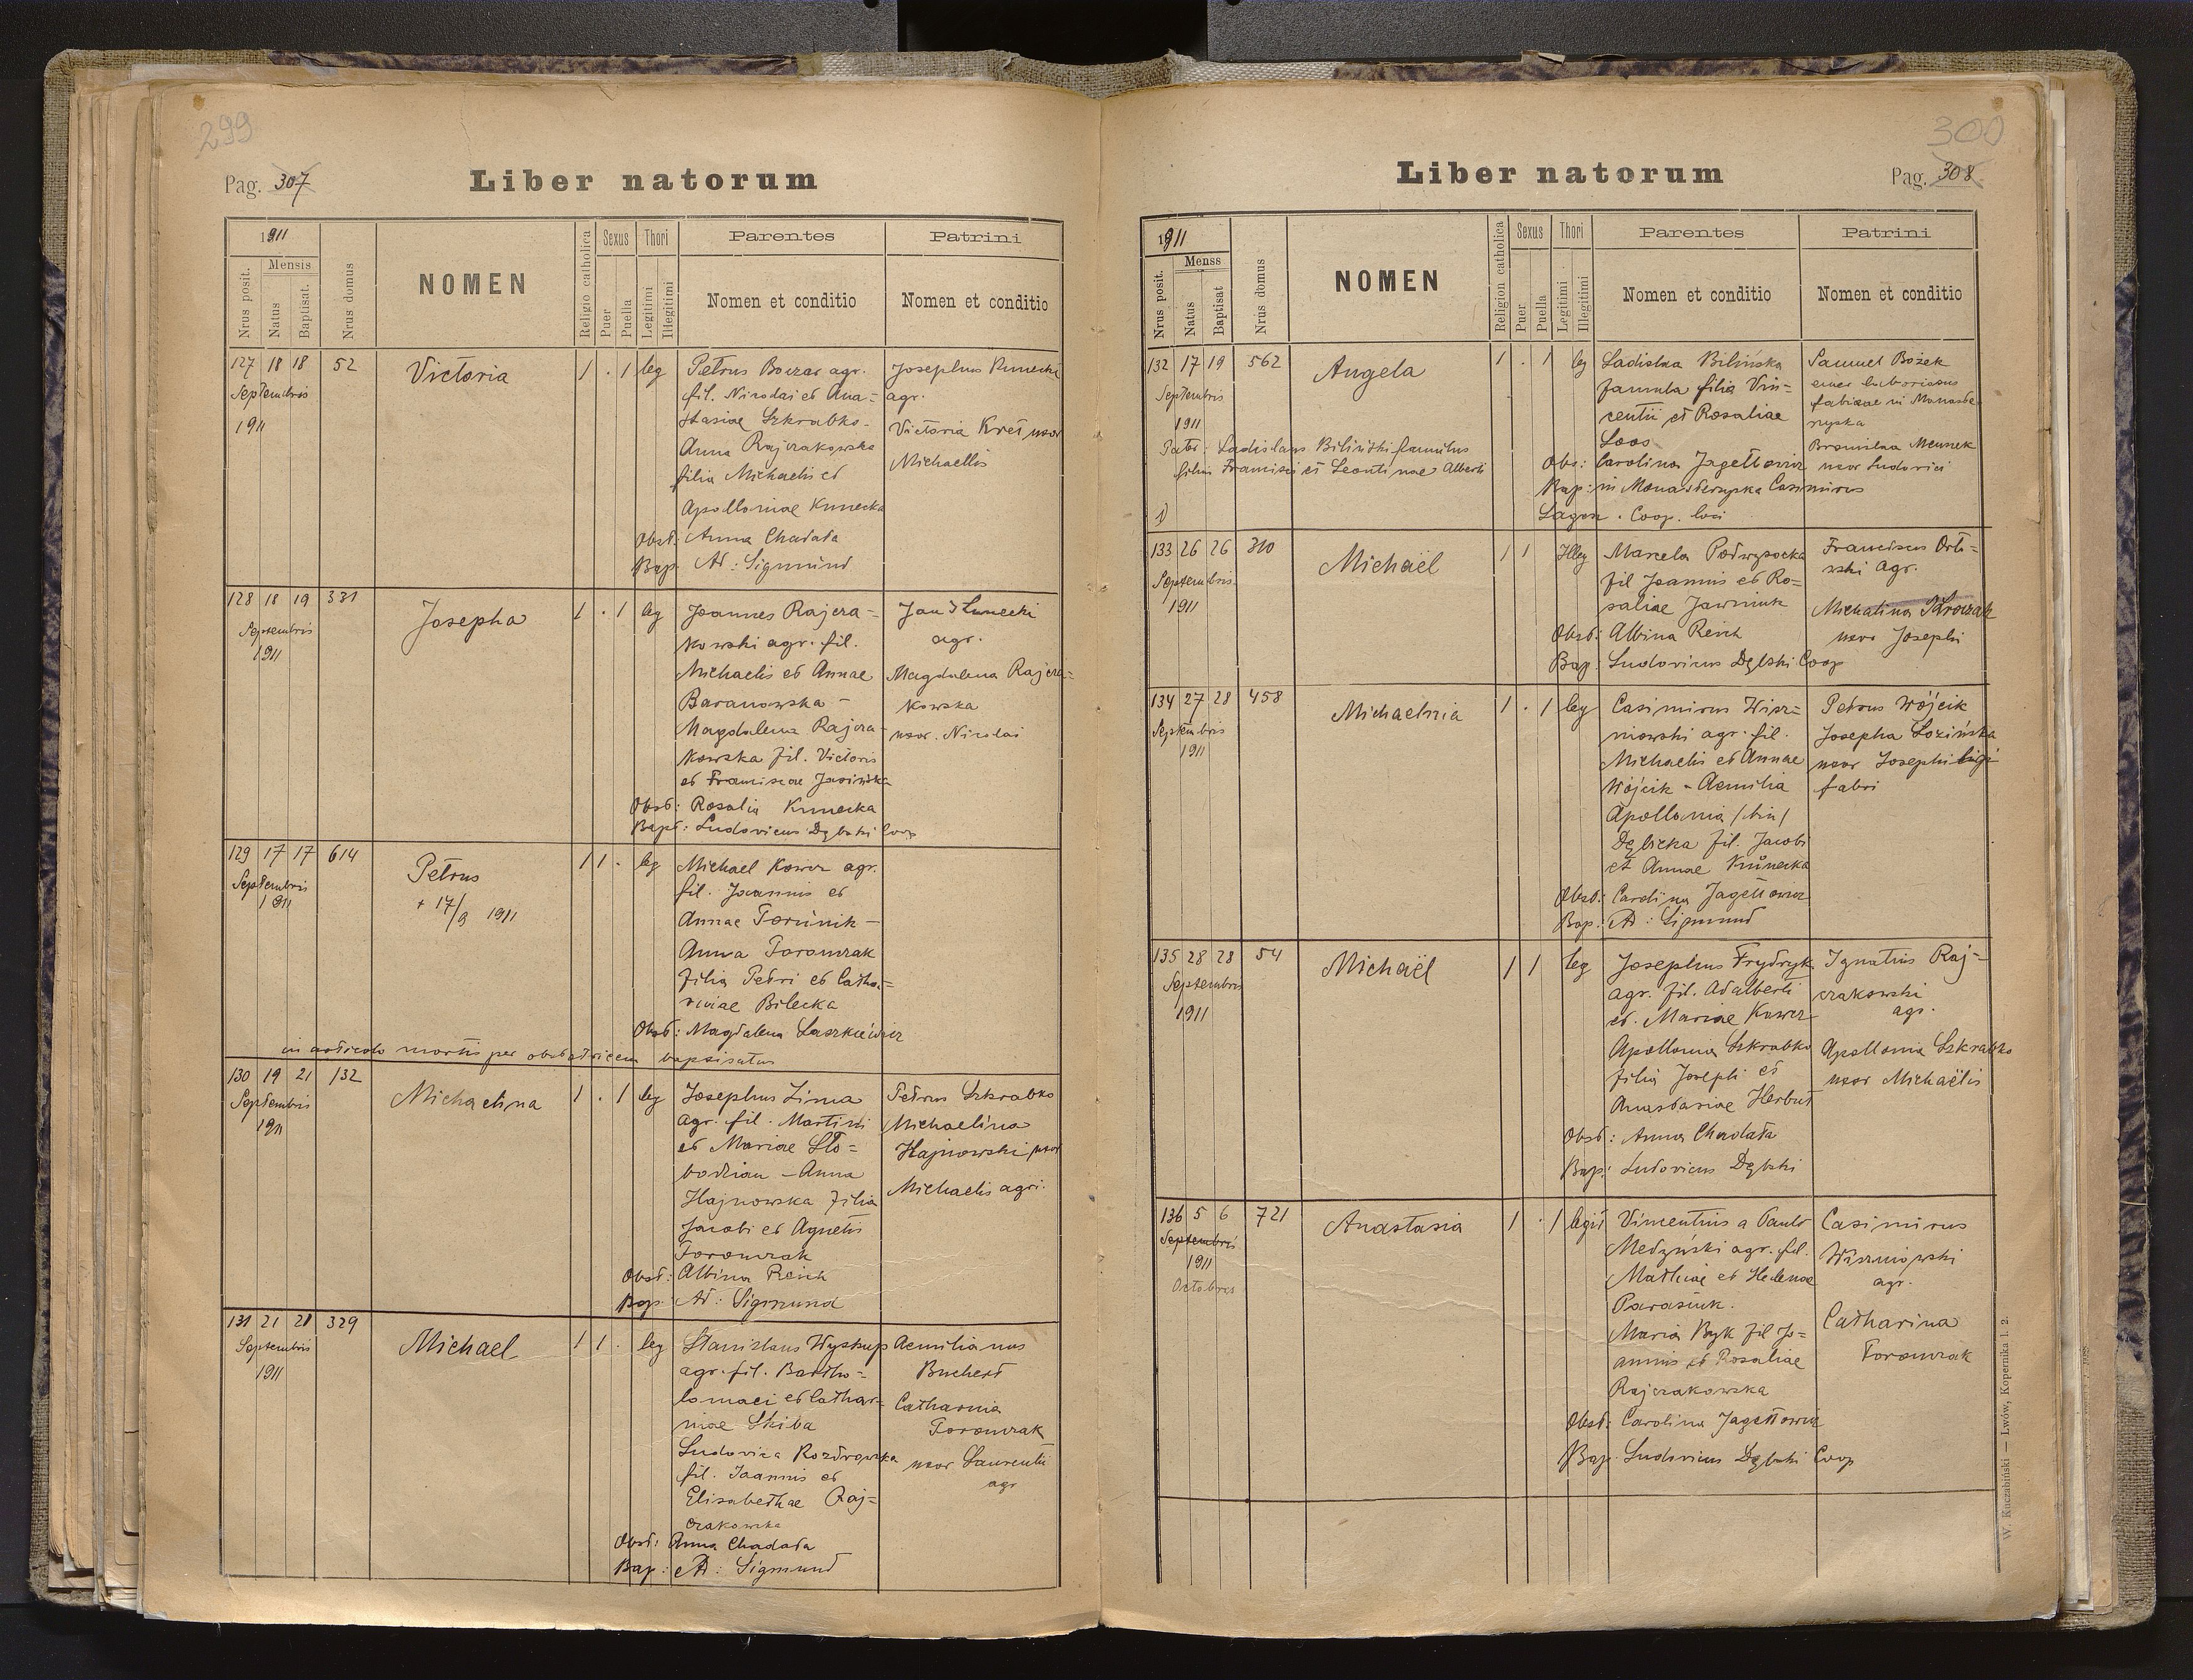 299
Pag. 307
Liber natorum
1911
Nrus posit.
Mensis
Natus
Baptisat.
Nrus domus
NOMEN
Religio catholica
Sexus
Puer
Puella
Thori
Legitimi
Illegitimi
Parentes
Nomen et conditio
Patrini
Nomen et conditio
127 18 18 52
Septembris
1911
Victoria
1 . 1 leg
Petrus Boczar agr.
fil. Nicolai et Ana=
stasiae Szkrabko -
Anna Rajczakowska
filia Michaelis et
Apolloniae Kunecka
Obst: Anna Chadała
Bap: Ad: Sigmund
Josephus Kunecki
agr.
Victoria Kret uxor
Michaellis
128 18 19 331
Septembris
1911
Josepha
1 . 1 leg
Joannes Rajcza=
kowski agr. fil.
Michaelis et Annae
Baranowska -
Magdalena Rajcza-
kowska fil. Victoris
et Franciscae Jasinska
Obst: Rosalia Kunecka
Bapt: Ludovicus Dębski Coop
Jan Kunecki
agr.
Magdalena Rajcza=
kowska
uxor. Nicolai
129 17 17 614
Septembris
1911
Petrus
+ 17/9 1911
1 1 . leg
Michael Kowcz agr.
fil. Joannis et
Annae -
Anna Toronczak
filia Petri et Catha=
rinae Bilecka
Obst: Magdalena Laszkiewicz
in articolo mortis per obstetricem baptisatus
130 19 21 132
Septembris
1911
Michaelina
1 . 1 leg
Josephus Zima
agr. fil. Martini
et Mariae Sło=
bodzian - Anna
Hajnowska filia
Jacobi et Agnetis
Toronczak
Obst: Albina Reich
Bap: Ad: Sigmund
Petrus Szkrabko
Michaelina
Hajnowski uxor
Michaelis agri.
131 21 21 329
Septembris
1911
Michael
1 1 . leg
Stanislaus Wyskup
agr. fil. Bartho=
lomaei et Cathar=
inae Skiba
Ludovica Rozdrowska
fil. Joannis et
Elisabethae Raj=
czakowska
Obst: Anna Chadała
Bap: Ad: Sigmund
Aemilianus
Buchert
Catharina
Toronczak
uxor Laurentii
agr
300
Liber natorum
Pag. 308
1911
Nrus posit.
Menss
Natus
Baptisat
Nrus domus
NOMEN
Religion catholica
Sexus
Puer
Puella
Thori
Legitimi
Illegitimi
Parentes
Nomen et conditio
Patrini
Nomen et conditio
132 17 19 562
Septembris
1911
Angela
1 . 1 leg
Ladislaa Bilińska
famula filia Vin=
centii et Rosaliae
Loos
Patr: Ladislaus Biliński famulus
filius Francisci et Leontinae Alberti
Obs: Carolina Jagełłowicz
Bap: in Monasterzyska Casimirus
Coop. loci
1)
Samuel Bożek
fabricae in Monaste
rzyska
Bronislaa
uxor Ludovici
133 26 26 310
Septembris
1911
Michaël
1 1 Illeg
Marcela Podwysocka
fil Joannis et Ro=
saliae Jawniuk
Obst: Albina Reich
Bap: Ludovicus Dębski Coop
Franciscus Orli=
wski agr.
Michalina
uxor Josephi
134 27 28 458
Septembris
1911
Michaelina
1 . 1 leg
Casimirus Wisz=
niowski agr. fil.
Michaelis et Annae
Wójcik - Aemilia
Apollonia /bin/
Dębicka fil. Jacobi
et Annae Kunecka
Obst: Carolina Jagełłowicz
Bap: Ad: Sigmund
Petrus Wójcik
Josepha Łozińska
uxor Josephi
fabri
135 28 28 54
Septembris
1911
Michaël
1 1 leg
Josephus Frydryk
agr. fil. Adalberti
et. Mariae Kowcz
Apollonia Szkrabko
filia Josephi et
Anastasiae Herbut
Obst: Anna Chadała
Bap: Ludovicus Dębski
Ignatius Raj=
czakowski
agr.
Apollonia Szkrabko
uxor Michaëlis
136 5 6 721
Septembris
1911
Octobris
Anastasia
1 . 1 legit
Vincentius a Paulo
Medyński agr. fil.
Mathiae et Helenae
Parasiuk.
Maria Byk fil Jo=
annis et Rosaliae
Rajczakowska
Obst: Carolina Jagełłowicz
Bap. Ludovicus Dębski Coop
Casimirus
Wiszniowski
agr.
Catharina
Toronczak
W. Kuczabiński — Lwów, Kopernika l. 2.